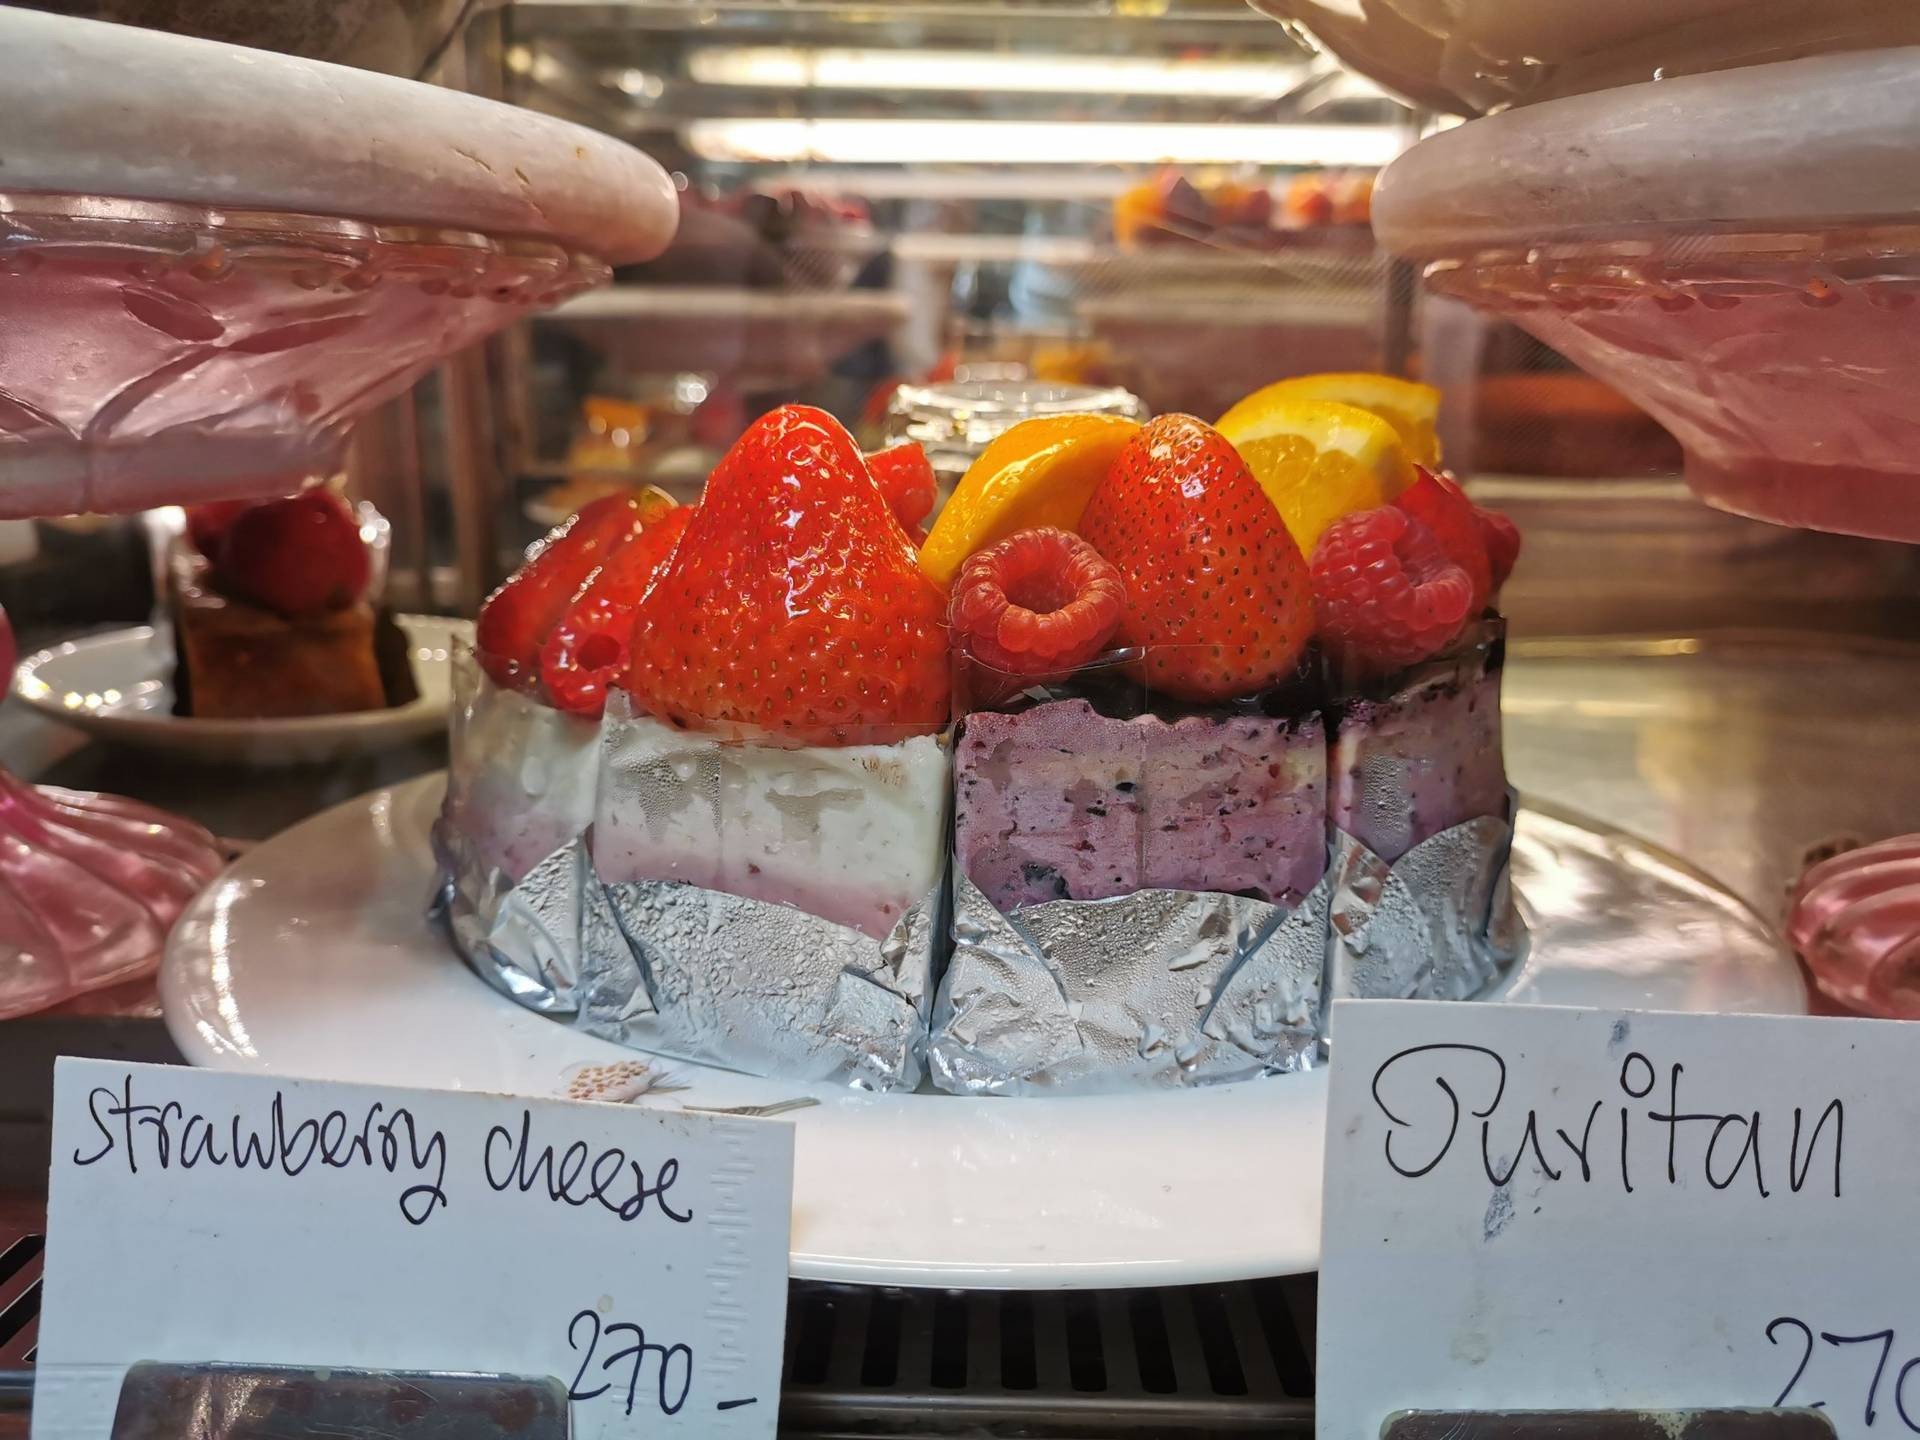 strawberry cheese
270 -
Puritan
270